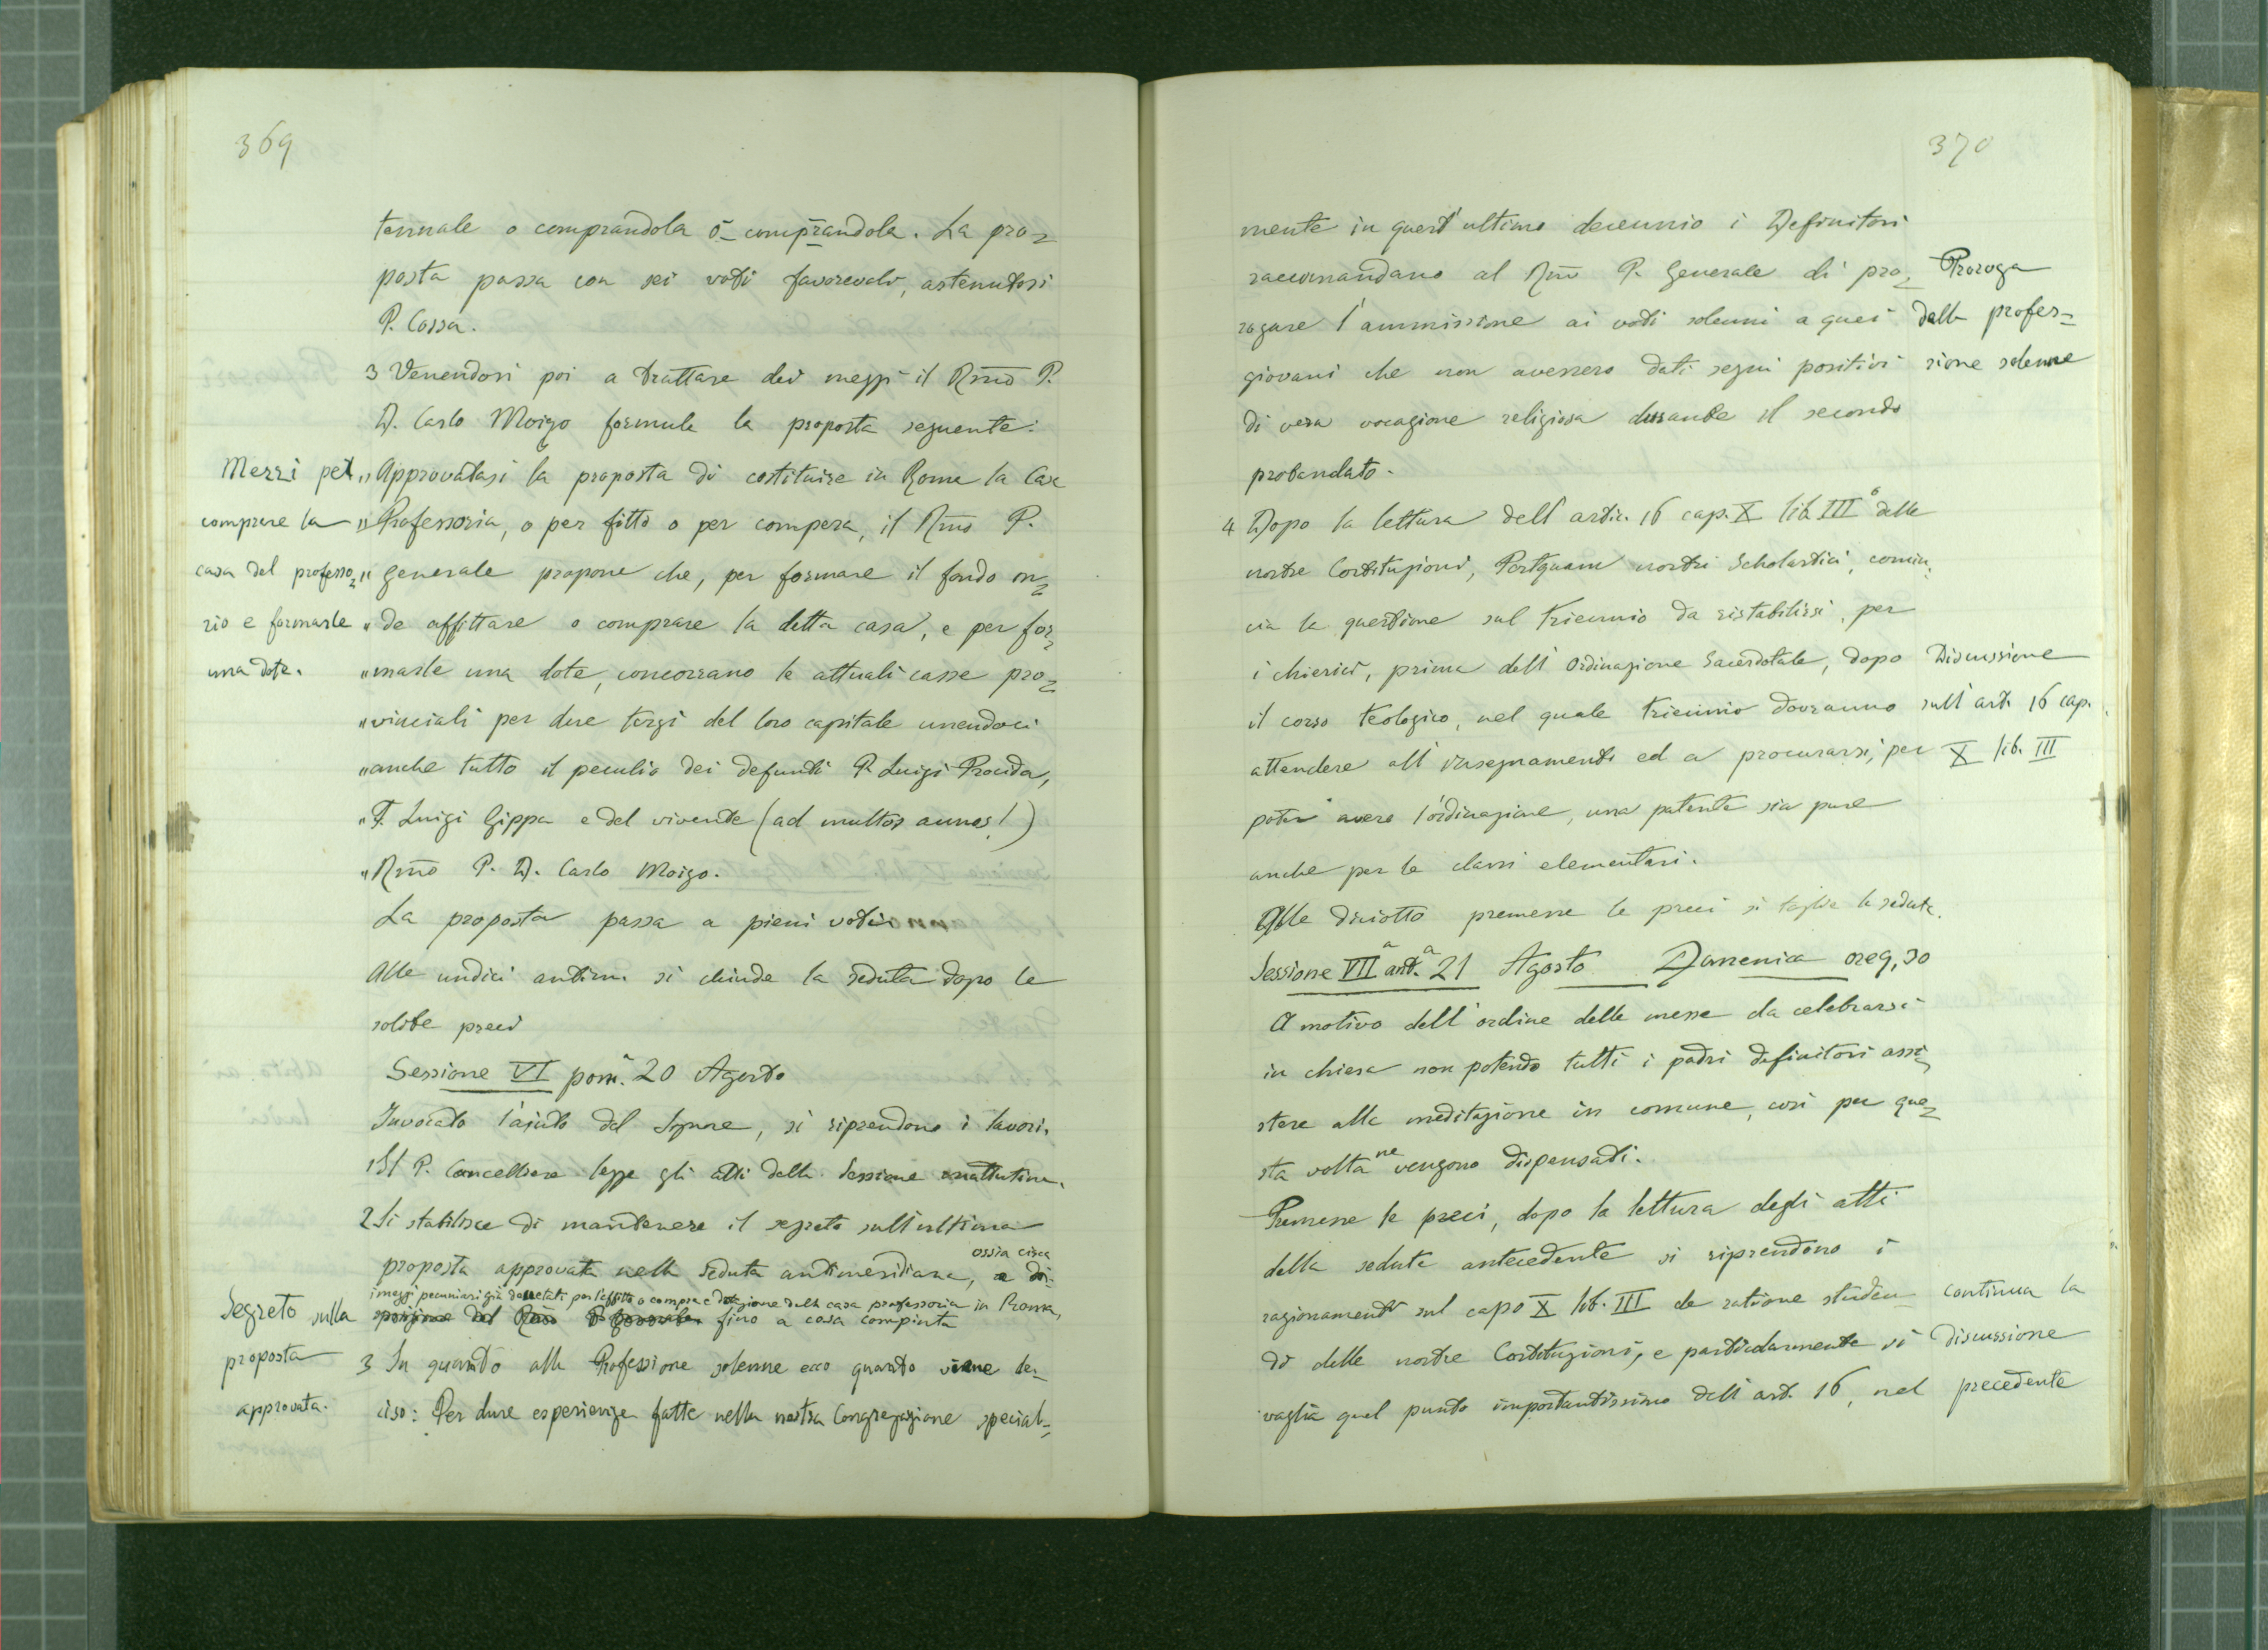 369
tennale o comprandola o comprandola. La pro=
posta passa con sei voti favorevoli, astenutosi
P. Cossa.
3 Venendosi poi a trattare dei mezzi il Rmo P.
D. Carlo Moizo formula la proposta seguente:
Mezzi per
comprare la
casa del professo=
rio e formarle
una dote.
"Approvatasi la proposta di costituire in Roma la Casa
"Professoria, o per fitto o per compera, il Rmo P.
"Generale propone che, per formare il fondo on=
"de affittare o comprare la detta casa, e per for=
"marle una dote, concorrano le attuali casse pro=
"vinciali per due terzi del loro capitale unendoci
"anche tutto il peculio dei defunti P. Luigi Procida,
"F. Luigi Gippa e del vivente (ad multos annos!)
"Rmo P. D. Carlo Moizo.
La proposta passa a pieni voti
Alle undici antim. si chiude la seduta dopo le
solite preci
Sessione VI pom.a 20 Agosto
Invocato l'ajuto del Signore, si riprendono i lavori.
1 Il P. Cancelliere legge gli atti della Sessione mattutina.
2 Si stabilisce di mantenere il segreto sull'ultima
proposta approvata nella seduta antimeridiana, ossia circa
i mezzi pecuniari già decretati per l'affitto o compra e dotazione della casa professoria in Roma,
fino a cosa compiuta
Segreto sulla
proposta
approvata.
3 In quanto alla Professione solenne ecco quanto viene de=
ciso: Per dure esperienze fatte nella nostra Congregazione special=
370
mente in quest'ultimo decennio i Definitori
raccomandano al Rmo P. Generale di pro=
rogare l'ammissione ai voti solenni a quei
giovani che non avessero dati segni positivi
di vera vocazione religiosa durante il secondo
probandato.
Proroga
della profes=
sione solenne
4 Dopo la lettura dell'artic. 16 cap. X lib. III° delle
nostre Costituzioni, Postquam nostri Scholastici, comin=
cia la questione sul triennio da ristabilirsi, per
i chierici, prima dell'Ordinazione Sacerdotale, dopo
il corso teologico, nel quale triennio dovranno
attendere all'insegnamento ed a procurarsi, per
poter avere l'ordinazione, una patente sia pure
anche per le classi elementari.
Discussione
sull'art. 16 cap.
X lib. III
Alle diciotto premesse le preci si toglie la seduta.
Sessione VIIa ant.a 21 Agosto Domenica ore 9,30
A motivo dell'ordine delle messe da celebrarsi
in chiesa non potendo tutti i padri definitori assi=
stere alla meditazione in comune, così per que=
sta volta ne vengono dispensati.
Premesse le preci, dopo la lettura degli atti
della seduta antecedente si riprendono i
ragionamenti sul capo X lib. III de ratione studen=
di delle nostre Costituzioni, e particolarmente si
vaglia quel punto importantissimo dell'art. 16, nel
continua la
discussione
precedente